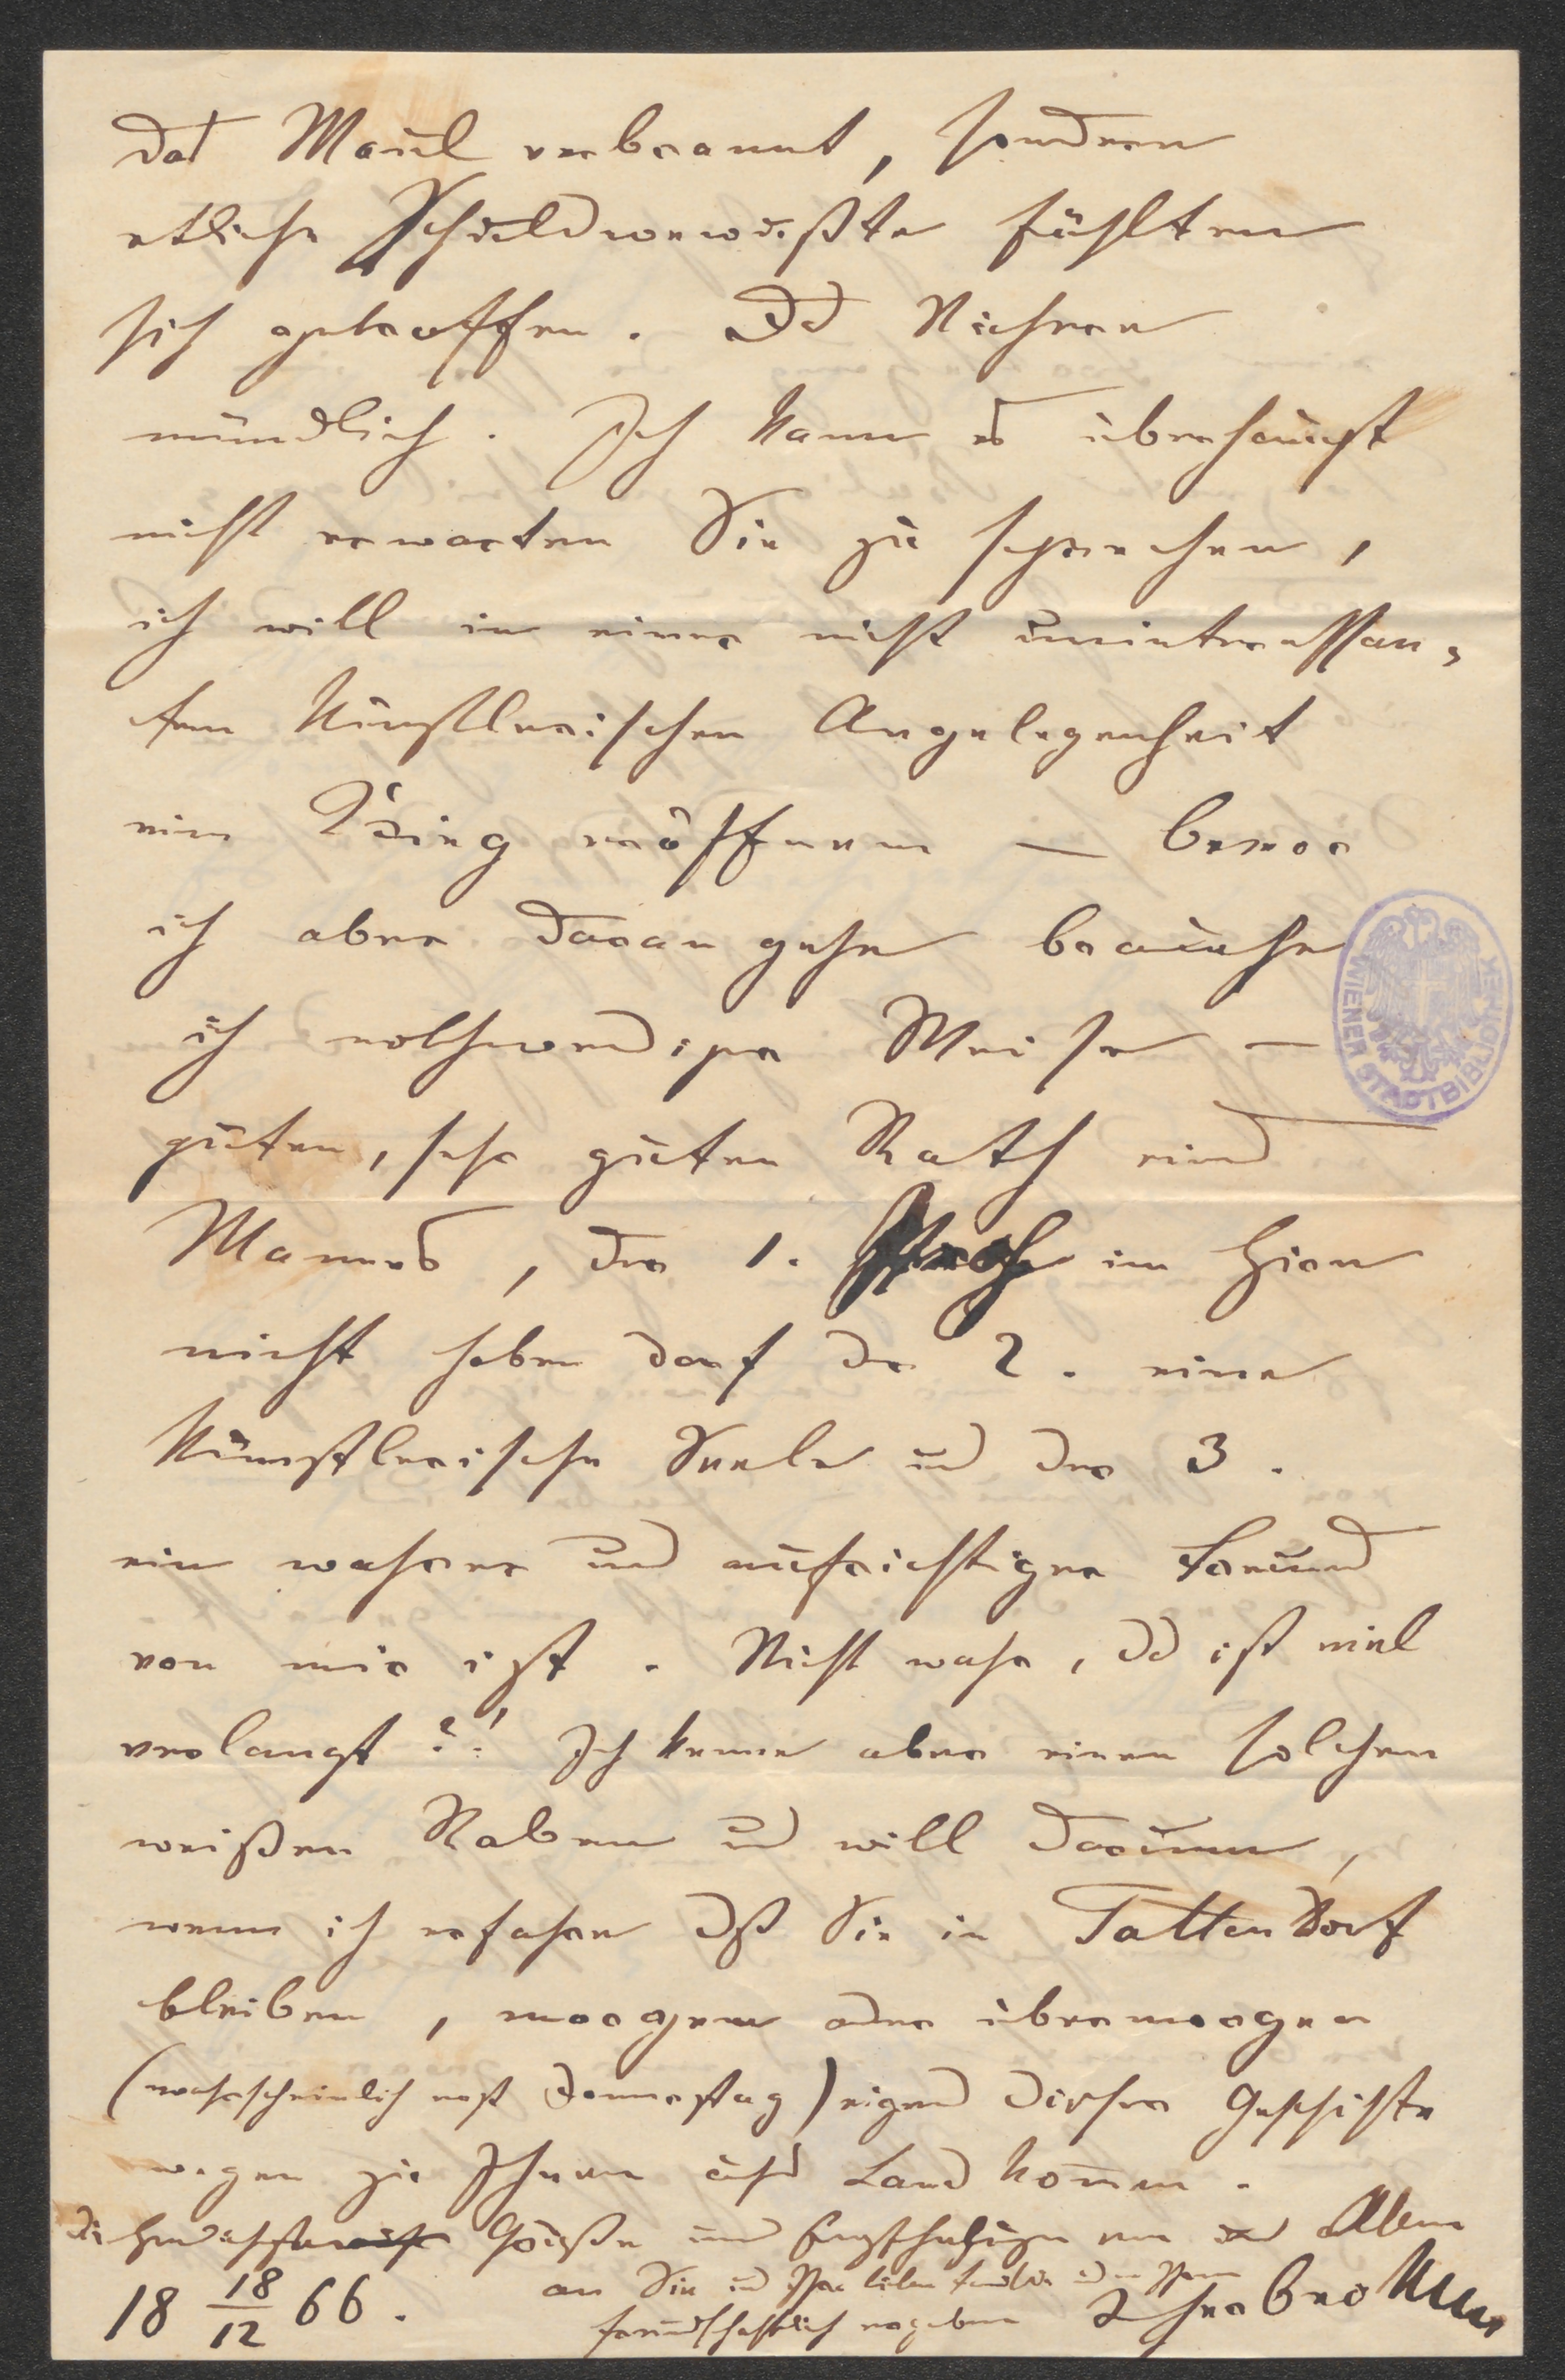 das Maul verbrannt, sondern
etliche Schuldbewußte fühlten
sich getroffen. Das Nähere
mündlich. Ich kann es überhaupt
nicht erwarten Sie zu sprechen,
ich will in einer nicht uninteressan-
ten künstlerischen Angelegenheit
einen Krieg eröffnen — bevor
ich aber daran gehe brauche
ich nothwendiger Weise —
guten, sehr guten Rath eines
Mannes, der 1. Stroh im Hirn
nicht haben darf der 2. eine
künstlerische Seele und der 3.
ein wahrer und aufrichtiger Freund
von mir ist. Nicht wahr, das ist viel
verlangt?! Ich kenne aber einen solchen
weißen Raben und will darum,
wenn ich erfahre dß Sie in Tattendorf
bleiben, morgen oder übermorgen
(wahrscheinlich erst Donnerstag) eigens dieser Geschichte
wegen zu Ihnen aufs Land kommen.
Die Grüße und Empfehlungen von uns Allen
18 18/12 66. an Sie und Ihre liebe Familie
freundschaftlich ergebener
WIENER STADTBIBLIOTHEK